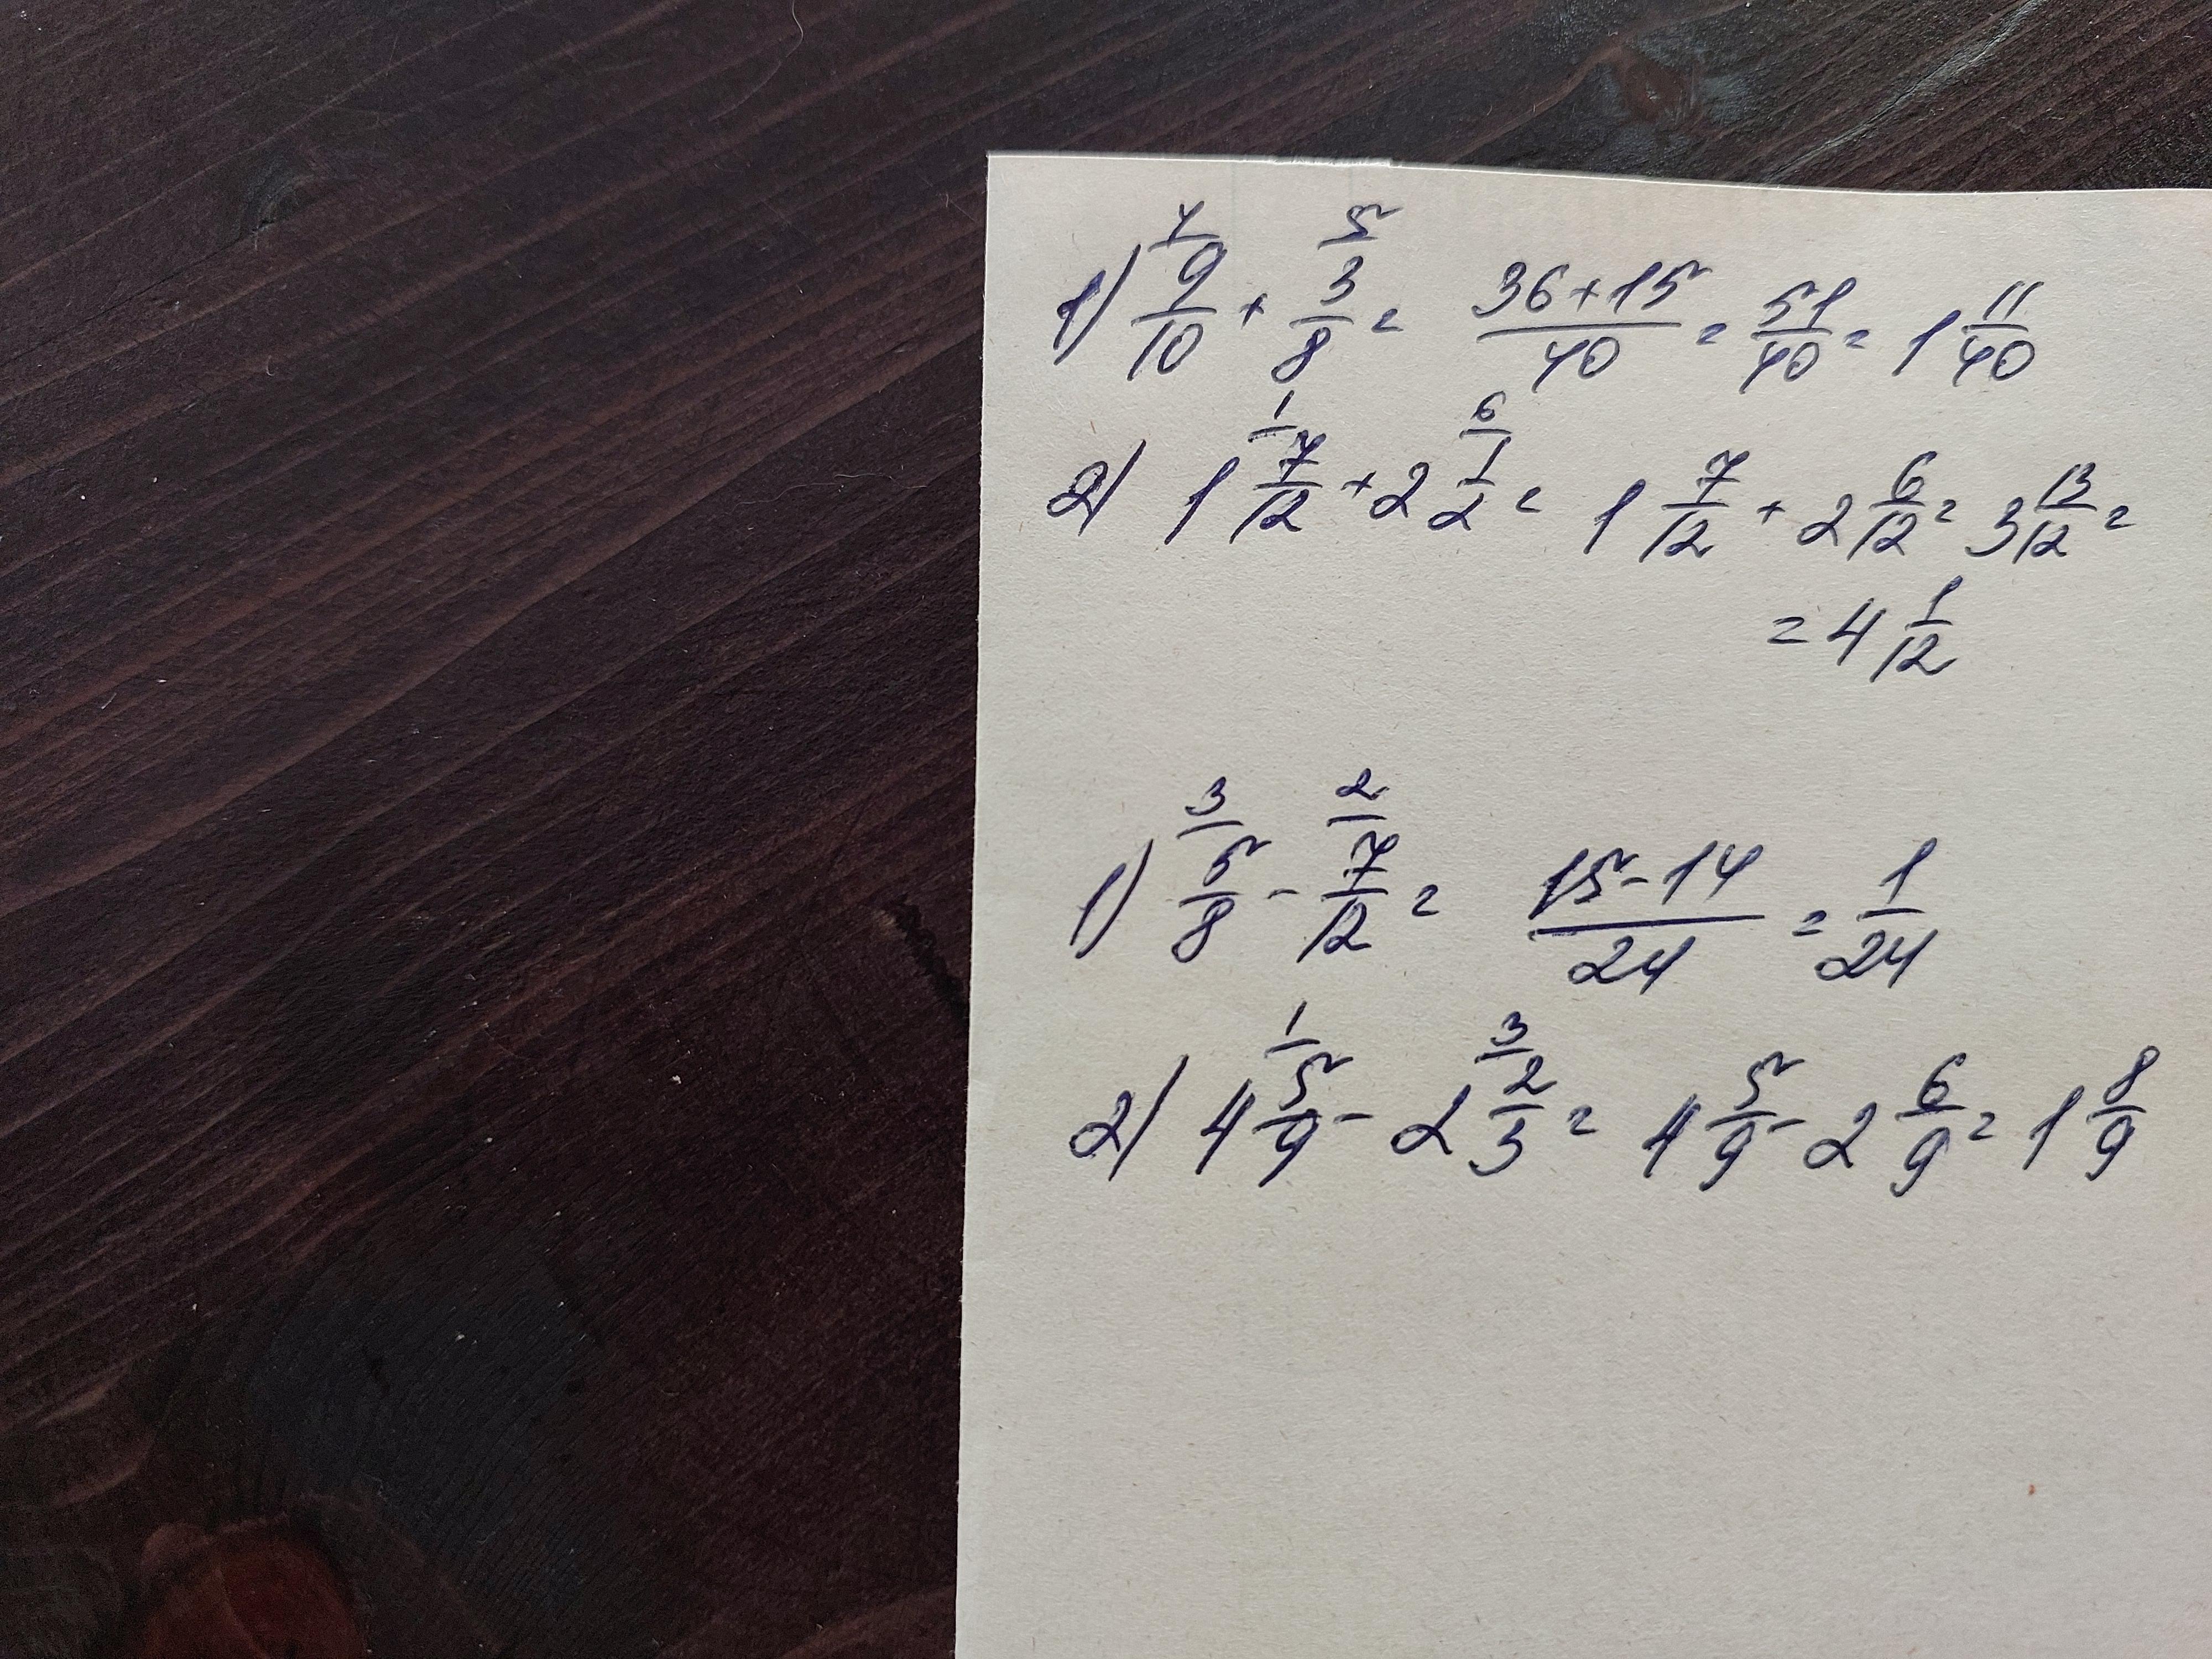 1) 4/ 9/10 + 5/ 3/8 = (36+15)/40 = 51/40 = 1 11/40
2) 1 1/ 7/12 + 2 6/ 1/2 = 1 7/12 + 2 6/12 = 3 13/12 =
= 4 1/12
1) 3/ 5/8 - 2/ 7/12 = (15-14)/24 = 1/24
2) 4 1/ 5/9 - 2 3/ 2/3 = 4 5/9 - 2 6/9 = 1 8/9